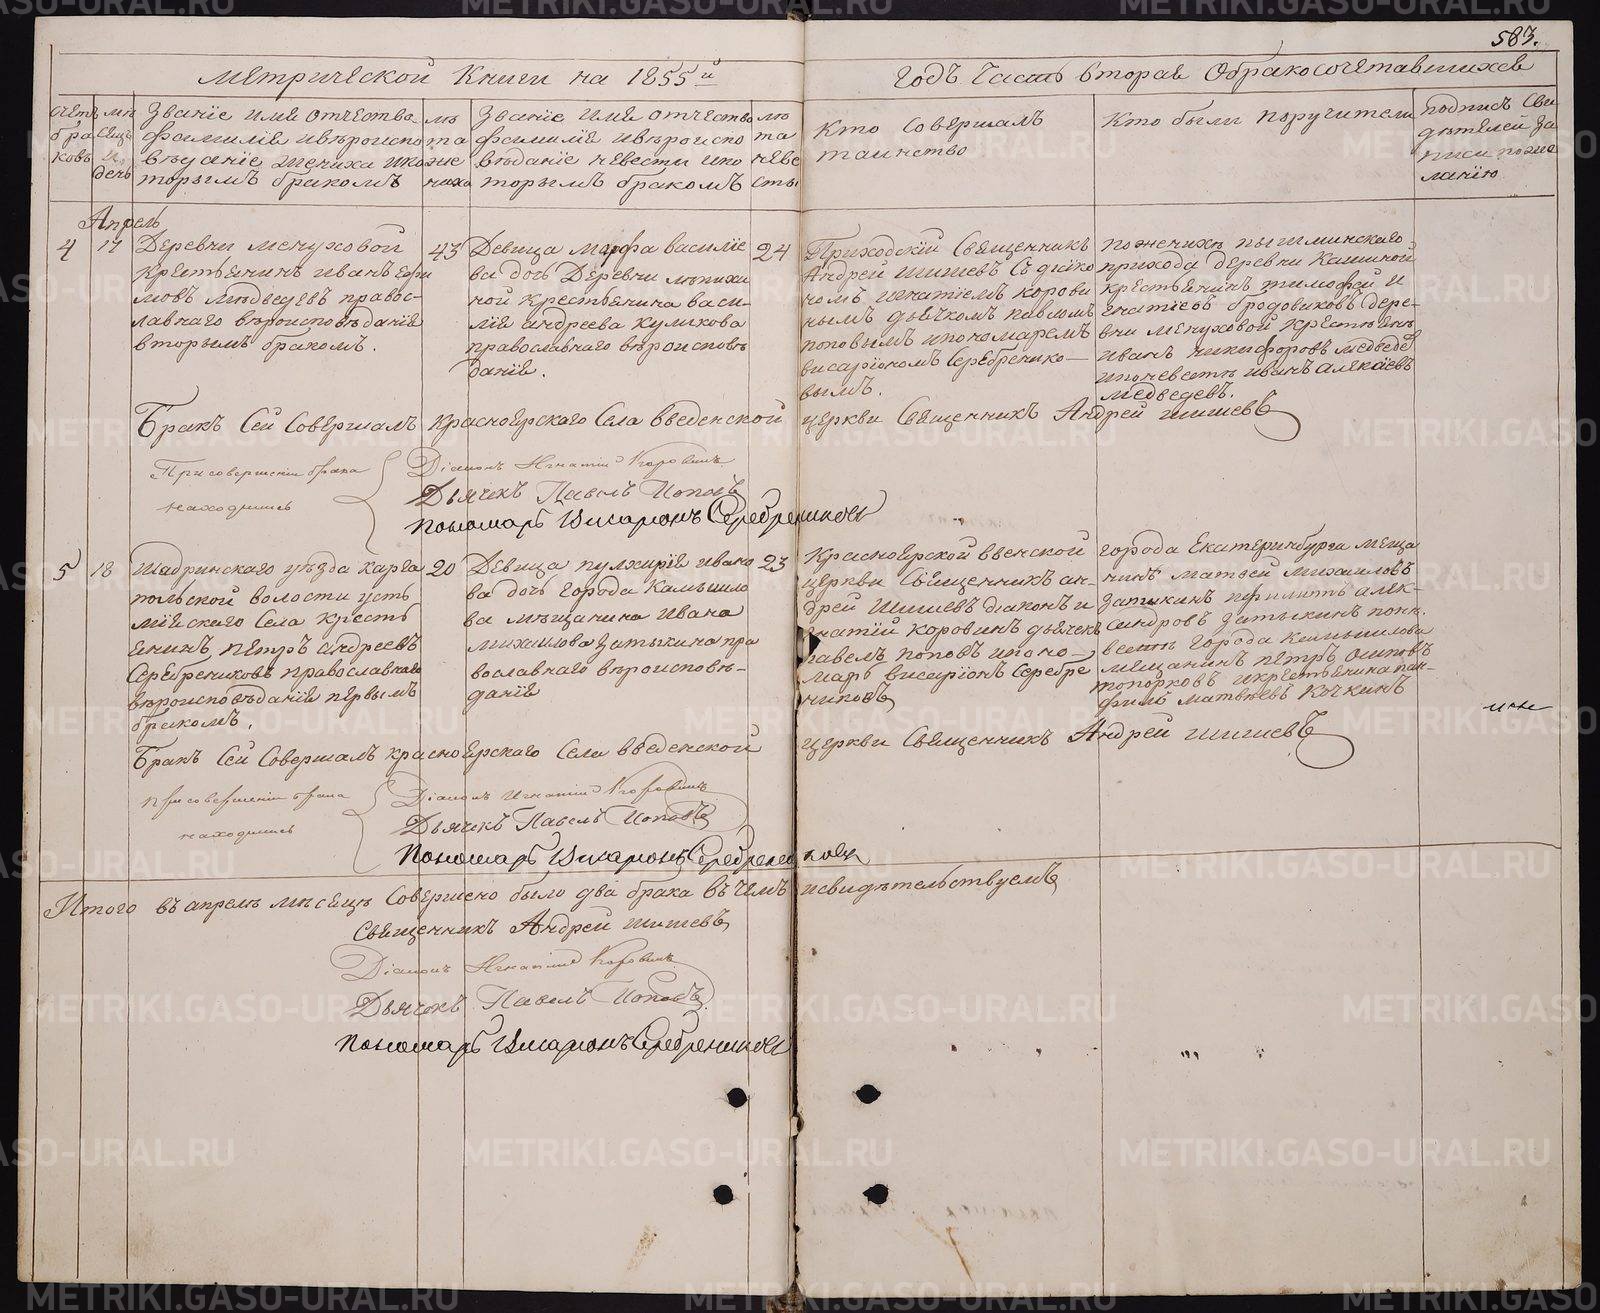 583.
Метрической Книги на 1855й
годъ Часть вторая Обракосочетавшихся
Счетъ бра ковъ
Мѣ сяцъ и день
Званіе имя отчество
фамиліе ивѣроиспо
вѣданіе жениха ико
торымъ бракомъ
лѣ та же ниха
Званіе имя отчество
фамиліе ивѣроиспо
вѣданіе невѣсты ико
торымъ бракомъ
лѣ та неве сты
Кто совершалъ
таинство
Кто были поручители
подпись сви
дѣтелей за
писи по же
ланію
Апрель
4
17
Деревни Менуховой
крестьянинъ иванъ ефи
мовъ Мѣдведевъ правос-
лавнаго вѣроисповѣданія
вторымъ бракомъ.
43
Девица Марфа василіе
ва дочь Деревни
ной крестьянина васи-
лія андреева куликова
православнаго вѣроисповѣ
данія.
24
Приходскій Священникъ
Андрей Шишевъ съ діако
номъ игнатіемъ корови
нымъ дьячкомъ павломъ
поповымъ ипономаремъ
висаріономъ Серебренико-
вымъ.
по женихѣ пышминскаго
прихода деревни Камыной
крестьянинъ тимофей и
игнатіевъ бродовиковъ дере-
вни менуховой крестьянъ
иванъ никифоровъ медведе
ипоневестѣ иванъ алекѣевъ
медведевъ.
Бракъ Сей Совершалъ красноярскаго Села введенской церкви Священникъ Андрей шишевъ
При совершеніи брака
находились
Діаконъ Игнатій Коровинъ
Дьячекъ Павелъ Поповъ
Пономарь Висарионъ Серебрениковъ
5
18
Шадринскаго уѣзда карга
польской волости усть
міяскаго Села кресть
янинъ петръ андреевъ
Серебрениковъ православнаго
вѣроисповѣданія первымъ
бракомъ.
20
Девица пулхирія ивано
ва дочь города Камышло
ва мѣщанина Ивана
михаилова Затыкина пра
вославнаго вѣроисповѣ-
данія
23
Красноярской ввенской
церкви Священникъ ан-
дрей Шишевъ діаконъ и
гнатій коровинъ дьячекъ
павелъ поповъ ипоно-
марь висаріонъ Серебре
никовъ
города Екатеринбурга меща
нинъ матвей михаиловъ
Затыкинъ алек-
сандровъ Затыкинъ поне
весте города Камышлова
мещанинъ петръ осиповъ
топорковъ икрестьянина пан-
филъ матвѣевъ Кочкинъ
Бракъ Сей Совершалъ красноярскаго Села введенской церкви Священникъ Андрей шишевъ
При совершеніи брака
находились
Діаконъ Игнатій Коровинъ
Дьячекъ Павелъ Поповъ
Пономарь Висарионъ Серебрениковъ
Итого въ апрелѣ мѣсяцѣ Совершено было два брака въ чемъ исвидѣтельствуемъ
Священникъ Андрей Шишевъ
Діаконъ Игнатій Коровинъ
Дьячекъ Павелъ Поповъ
Пономарь Висарионъ Серебрениковъ
METRIKI.GASO-URAL.RU